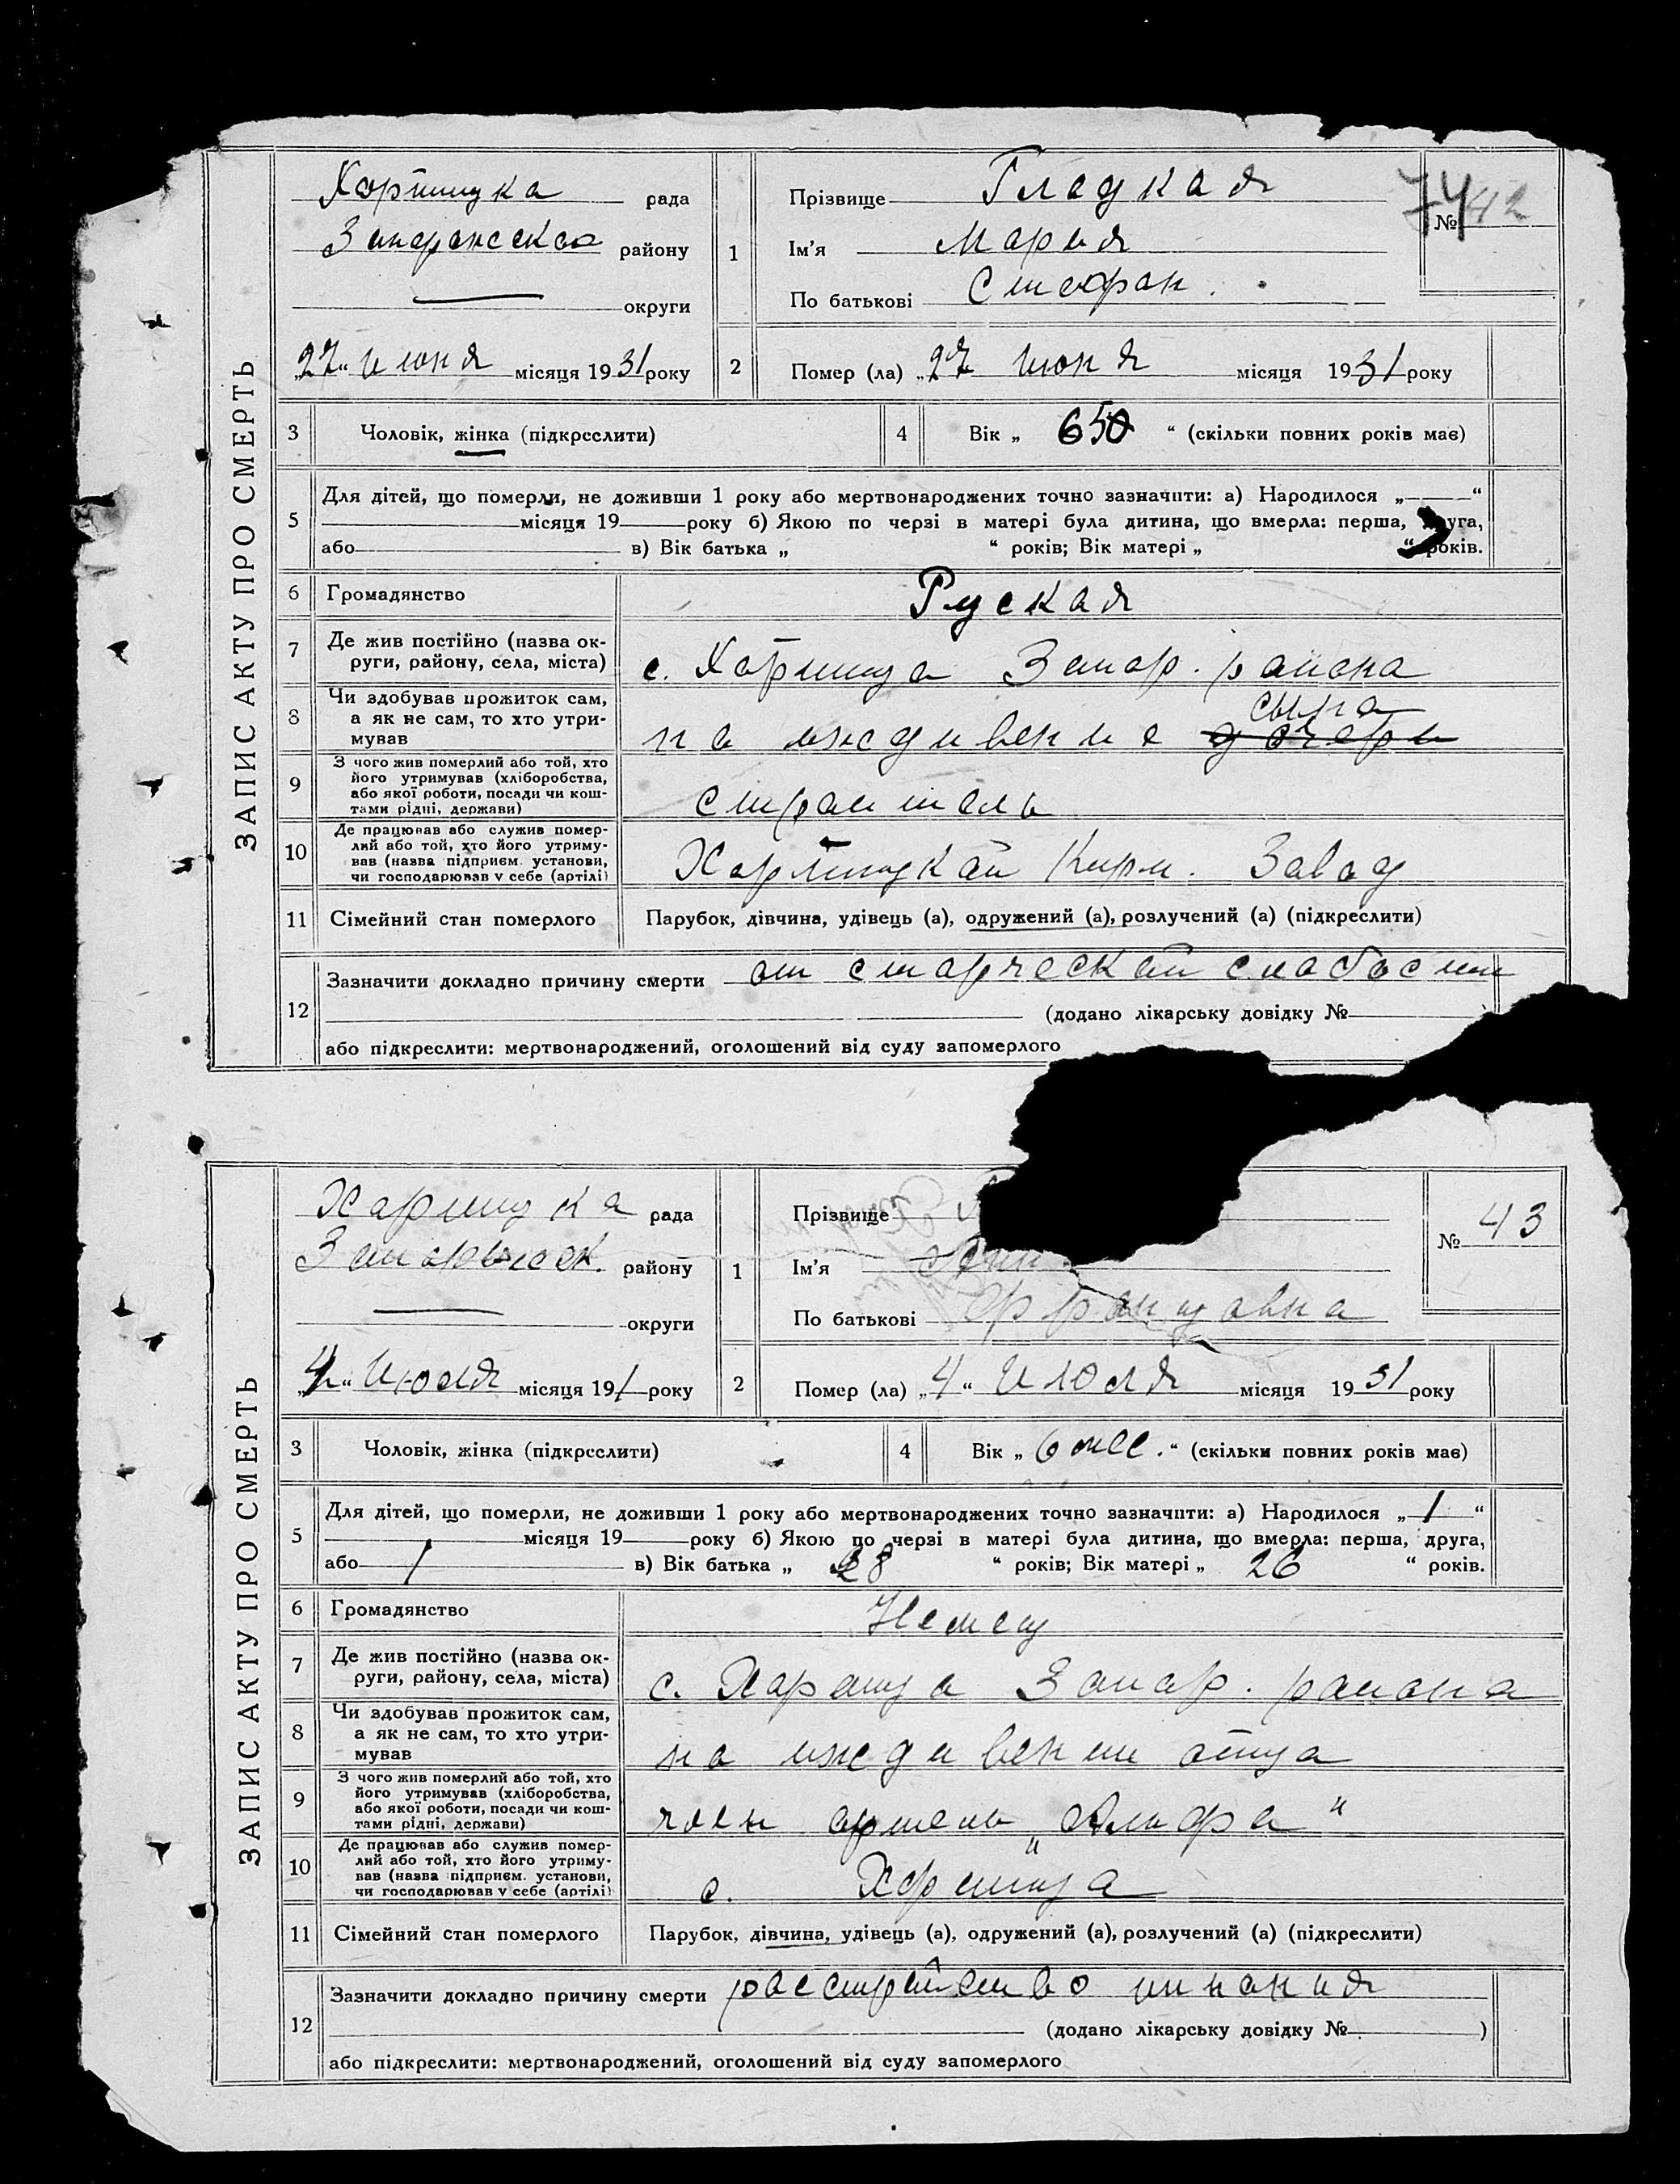 ЗАПИС АКТУ ПРО СМЕРТЬ
Хортицка рада
району
округи
„27“ Июня місяця 1931 року
1
Прізвище Гладкая
Ім'я Мария
По батькові Стефан.
74
№ 42
2
Помер (ла) „27 Июня місяця 1931 року
3
Чоловік, жінка (підкреслити)
4
Вік „ 650 “ (скільки повних років має)
5
Для дітей, що померли, не доживши 1 року або мертвонароджених точно зазначити: а) Народилося „ “
місяця 19 року б) Якою по черзі в матері була дитина, що вмерла: перша, друга,
або в) Вік батька „ “ років; Вік матері „ “ років.
6
Громадянство Руская
7
Де жив постійно (назва ок-
руги, району, села, міста)
с. Хортица Запор. района
8
Чи здобував прожиток сам,
а як не сам, то хто утри-
мував
сына
на иждивение дочери
9
З чого жив померлий або той, хто
його утримував (хліборобства,
або якої роботи, посади чи кош-
тами рідні, держави)
строитель
10
Де працював або служив помер-
лий або той, хто його утриму-
вав (назва підприєм. установи,
чи господарював у себе (артілі)
Хортицкой Кирп. Завод
11
Сімейний стан померлого
Парубок, дівчина, удівець (а), одружений (а), розлучений (а) (підкреслити)
12
Зазначити докладно причину смерти от старческой слабости
(додано лікарську довідку №
або підкреслити: мертвонароджений, оголошений від суду запомерлого
ЗАПИС АКТУ ПРО СМЕРТЬ
Хортицка рада
району
округи
„4“ Июля місяця 191 року
1
Прізвище
Ім'я
По батькові Францовна
№ 43
2
Помер (ла) „4“ Июля місяця 1931 року
3
Чоловік, жінка (підкреслити)
4
Вік „ 6 мес. “ (скільки повних років має)
5
Для дітей, що померли, не доживши 1 року або мертвонароджених точно зазначити: а) Народилося „ 1 “
місяця 19 року б) Якою по черзі в матері була дитина, що вмерла: перша, друга,
або 1 в) Вік батька „ 28 “ років; Вік матері „ 26 “ років.
6
Громадянство Немец
7
Де жив постійно (назва ок-
руги, району, села, міста)
с. Хортица Запор. района
8
Чи здобував прожиток сам,
а як не сам, то хто утри-
мував
на иждивении отца
9
З чого жив померлий або той, хто
його утримував (хліборобства,
або якої роботи, посади чи кош-
тами рідні, держави)
член артель „Альфа“
10
Де працював або служив помер-
лий або той, хто його утриму-
вав (назва підприєм. установи,
чи господарював у себе (артілі)
с. Хортица
11
Сімейний стан померлого
Парубок, дівчина, удівець (а), одружений (а), розлучений (а) (підкреслити)
12
Зазначити докладно причину смерти расстройство питания
(додано лікарську довідку № )
або підкреслити: мертвонароджений, оголошений від суду запомерлого